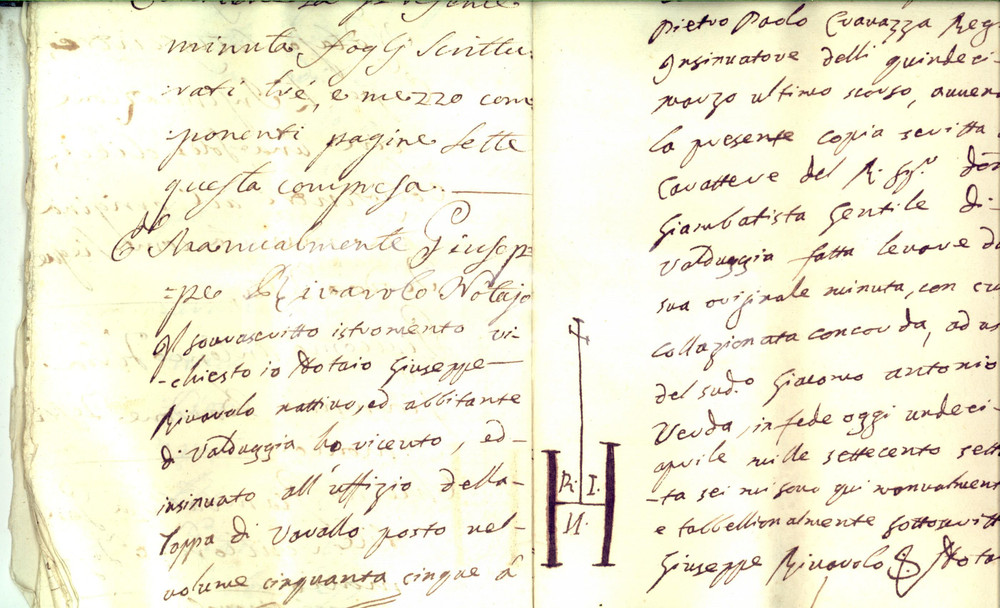 minuta, fogli scrittu
:rati tré, e mezzo com
:ponenti pagine sette
questa compresa.
Manualmente Giusep
:pe Rivarolo Notajo
Il sovrascritto istromento ri-
-chiesto io Notaio Giuseppe
Rivarolo nattivo, ed abbitante
di Valduggia ho ricevto, ed-
insinuato all'uffizio della-
Toppa di Varallo posto nel-
volume cinquanta cinque à
R. I.
N.
Pietro Paolo Cravazza Reg.
Insinuatore delli quindeci-
marzo ultimo scorso, avven
la presente copia scritta
Carattere del R. Sig.r don
Giambatista Gentile di-
Valduggia fatta levare da
sua originale minuta, con cu
collazionata concorda, ad us
del sud.o Giacomo antonio
Verda, in fede oggi undeci-
aprile mille settecento sett
-ta sei mi sono qui manualment
e tabbellionalmente sottoscritt
Giuseppe Rivarolo Nota